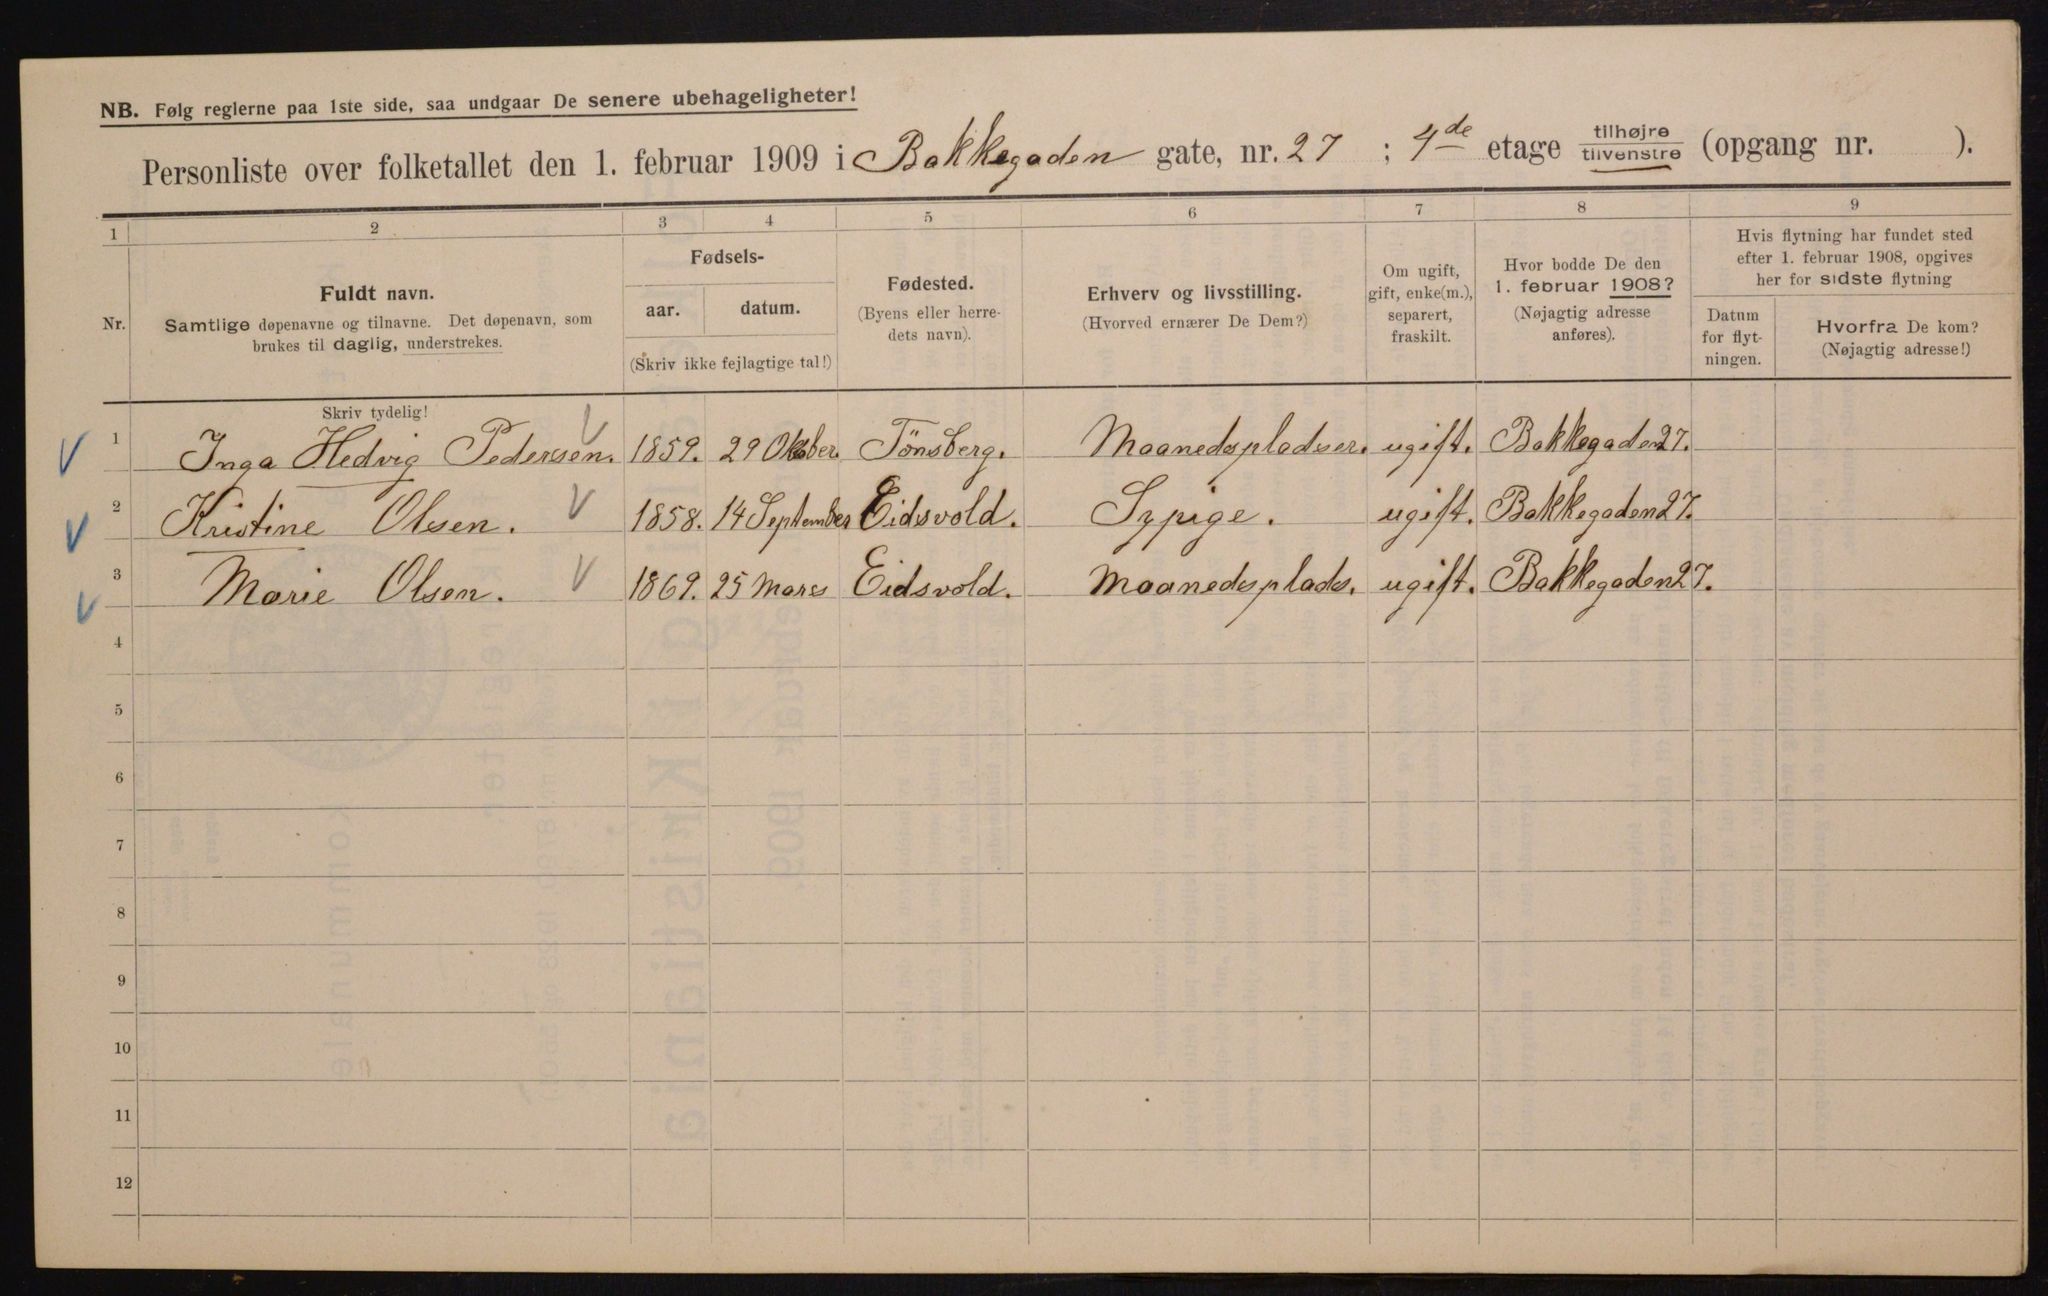 NB. Følg reglerne paa 1ste side, saa undgaar De senere ubehageligheter!
Personliste over folketallet den 1. februar 1909 i Bakkegaden gate, nr. 27 ; 4de etage tilhøjre tilvenstre (opgang nr. ).
1 2 3 4 5 6 7 8 9
Nr.
Fuldt navn.
Samtlige døpenavne og tilnavne. Det døpenavn, som
brukes til daglig, understrekes.
Fødsels-
aar. datum.
(Skriv ikke fejlagtige tal!)
Fødested.
(Byens eller herre-
dets navn).
Erhverv og livsstilling.
(Hvorved ernærer De Dem?)
Om ugift,
gift, enke(m.),
separert,
fraskilt.
Hvor bodde De den
1. februar 1908?
(Nøjagtig adresse
anføres).
Hvis flytning har fundet sted
efter 1. februar 1908, opgives
her for sidste flytning
Datum
for flyt-
ningen.
Hvorfra De kom?
(Nøjagtig adresse!)
Skriv tydelig!
1 Inga Hedvig Pedersen. 1859. 29 Oktober. Tönsberg. Maanedspladser. ugift. Bakkegaden 27.
2 Kristine Olsen. 1858. 14 September Eidsvold. Sypige. ugift. Bakkegaden 27.
3 Marie Olsen. 1869. 25 Mars Eidsvold. Maanedsplads. ugift. Bakkegaden 27.
4
5
6
7
8
9
10
11
12